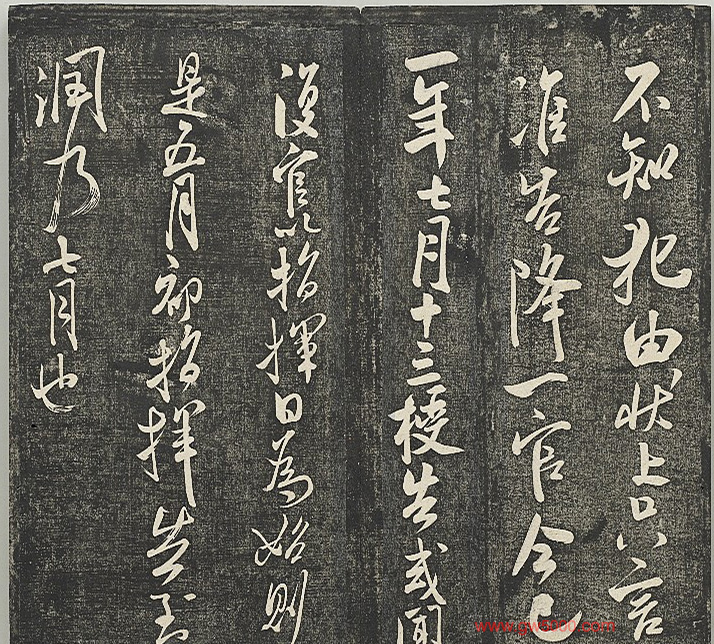 不知犯由狀上只言
准告降一官今已
一年七月十三授告或聞
復官以指揮日為始則
是五月初指揮告到
潤乃七月也
www.gw8000.com